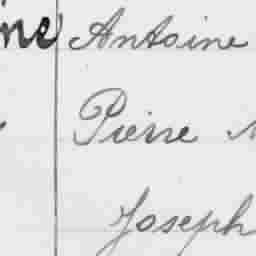 Antoine
Pierre
Joseph